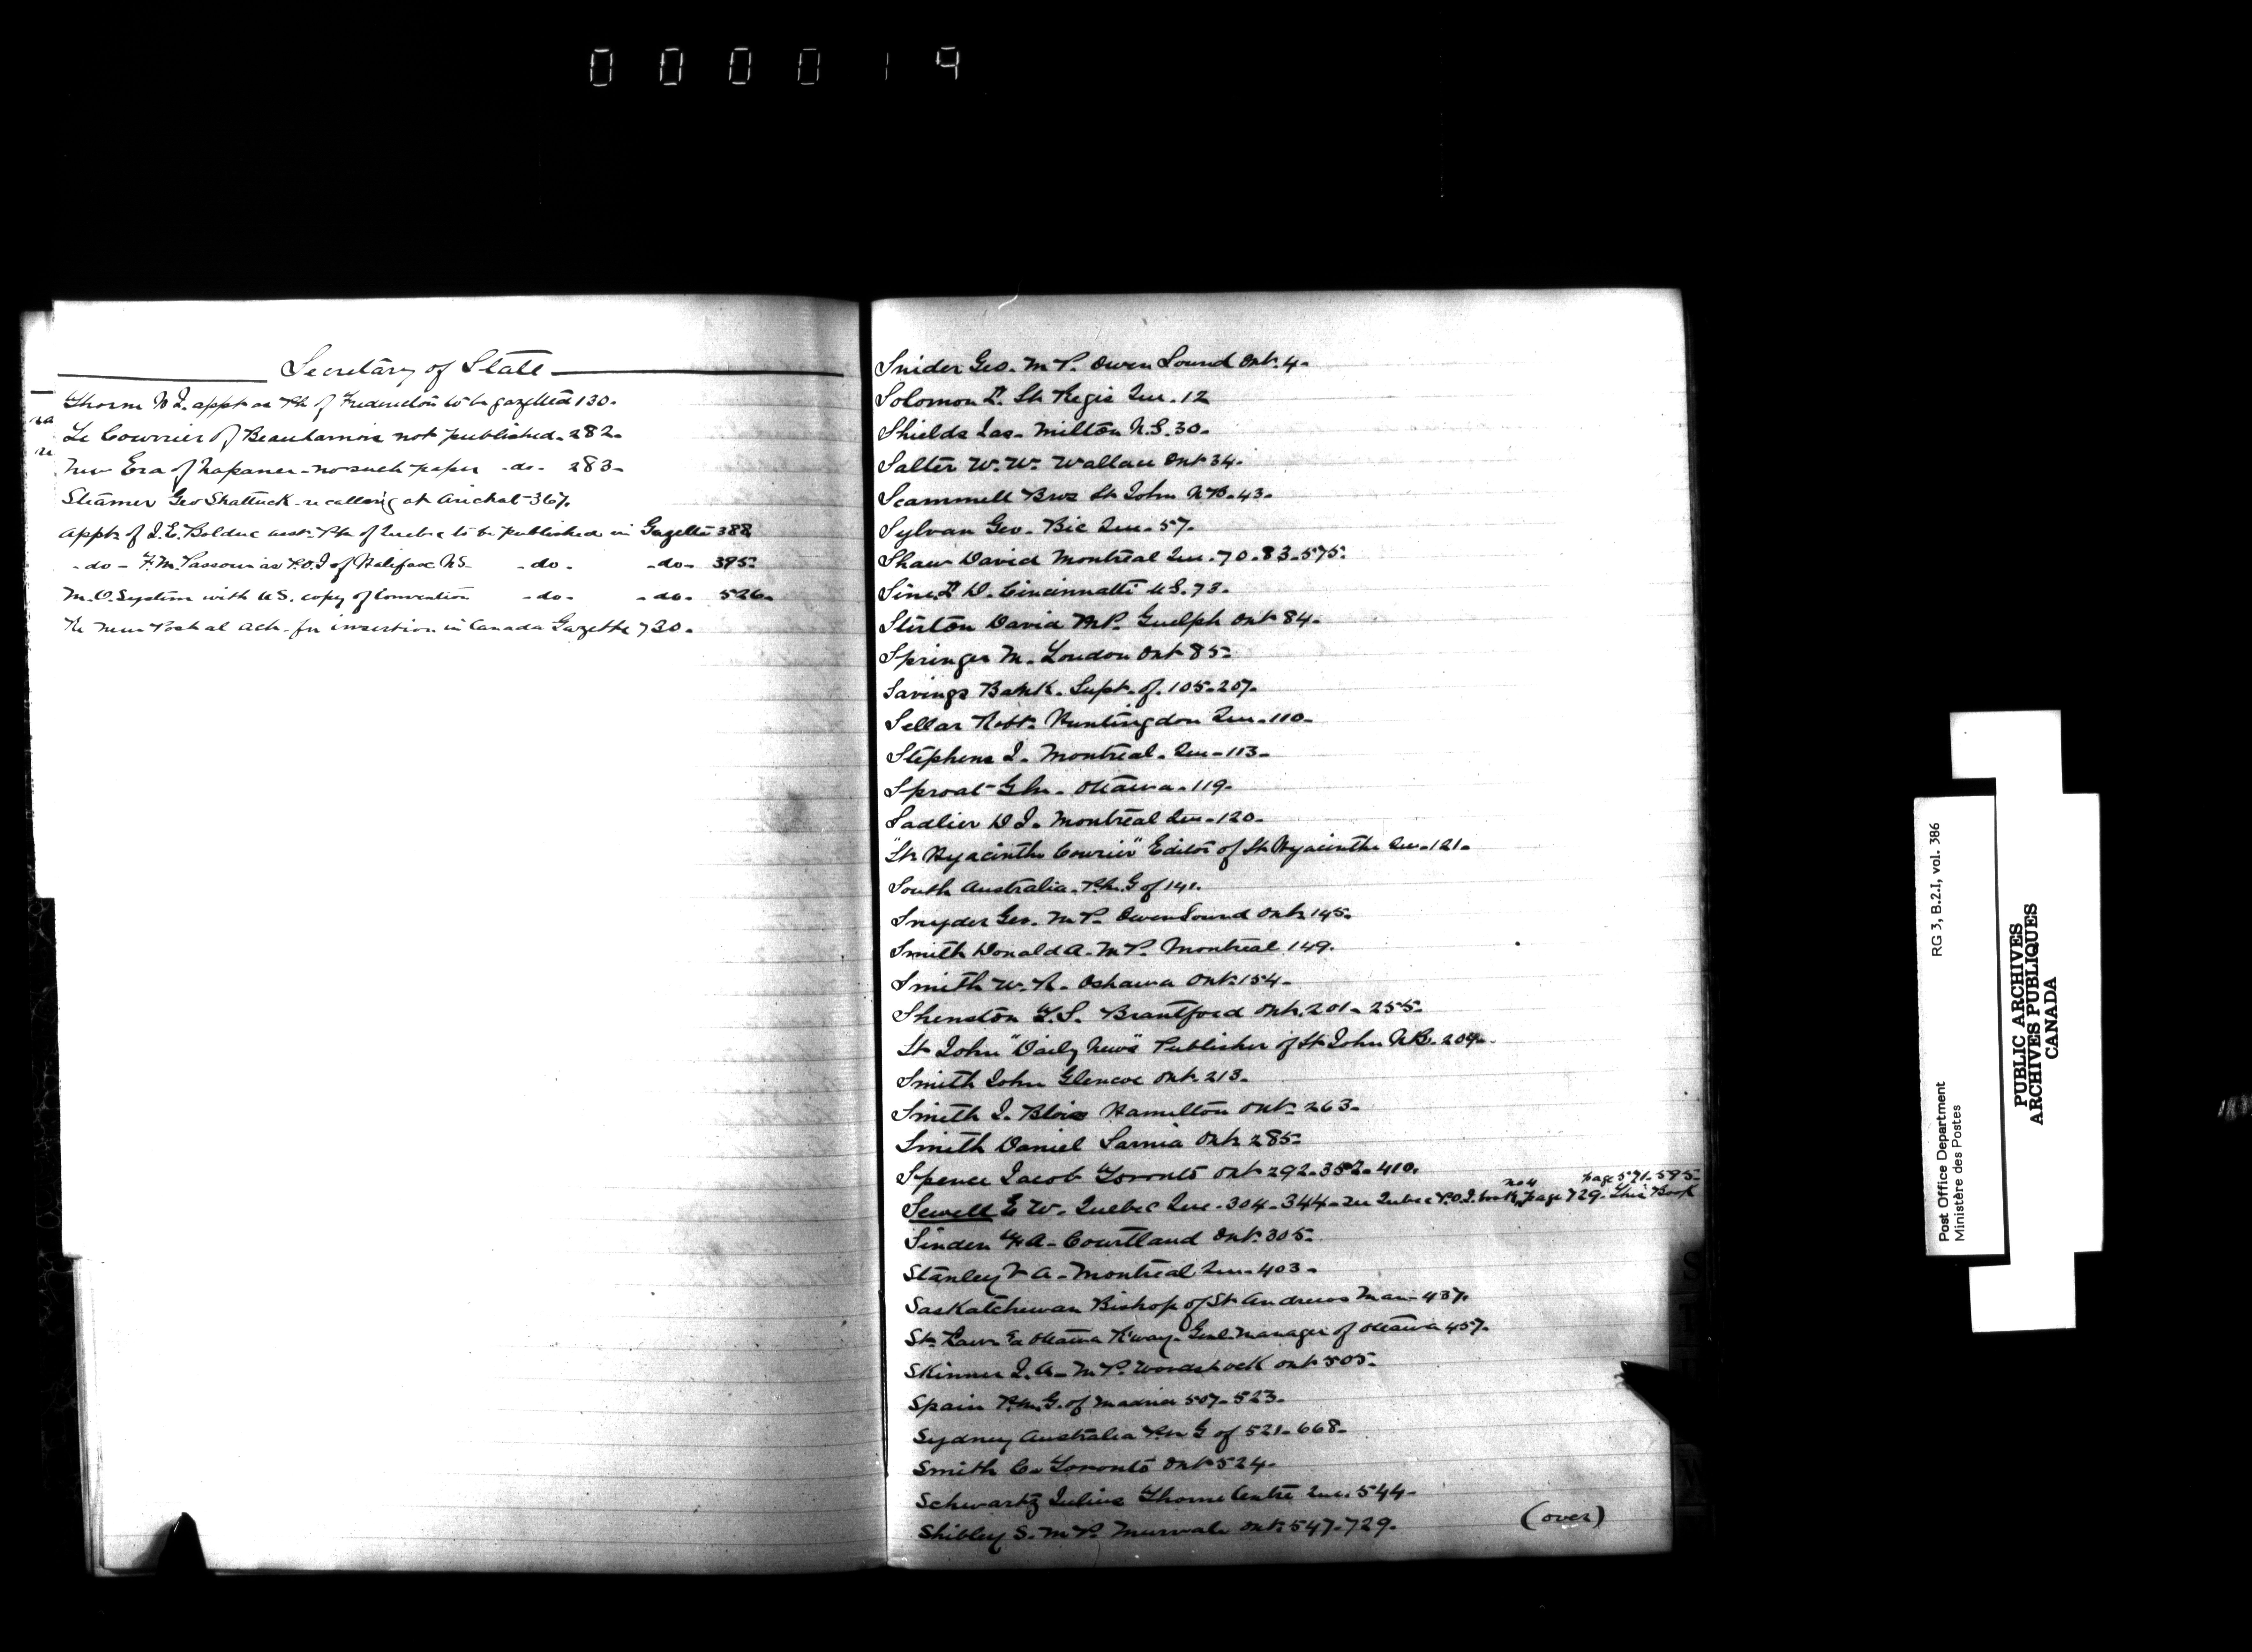 000019
Secretary of State
Thorne W I. appt as PM of Fredericton to be gazetted 130.
Le Courrier of Beauharnois not published. 282.
New Era of Napanee - no such paper -do- 283-
Steamer Geo Shattuck - re calling at Arichat - 367.
Appt of J.E. Bolduc asst. PM of Quebec to be published in Gazette 388
-do- F.M. Passow as P.O.I of Halifax NS -do- -do- 395-
M.O. System with U.S. copy of Convention -do- -do- 526-
The New Postal Act - for insertion in Canada Gazette 730.
Snider Geo. M P. Owen Sound Ont. 4-
Solomon L. St Regis Que. 12
Shields Jas- Milton N.S. 30.
Salter W. W. Wallace Ont 34.
Scammell Bros St John N.B. 43.
Sylvan Geo. Bic Que. 57.
Shaw David Montreal Que. 70. 83-575.
Sine D. Cincinnatti U.S. 73.
Stirton David MP. Guelph Ont 84.
Springer M. London Ont 85-
Savings Bank. Supt. of. 105-207.
Sellar Robt. Huntingdon Que. 110-
Stephens J. Montreal. Que - 113-
Sproat G M. Ottawa. 119-
Sadlier D J. Montreal Que - 120-
"St Hyacinthe Courier" Editor of St Hyacinthe Que. 121.
South Australia. P.M.G of 141.
Snyder Geo. M P. Owen Sound Ont 145.
Smith Donald A. M P. Montreal 149.
Smith W. R. Oshawa Ont. 154-
Shenston T.S. Brantford Ont. 201-255-
St John "Daily News" Publisher of St John N.B. 204.
Smith John Glencoe Ont. 213.
Smith J. Blois Hamilton Ont- 263-
Smith Daniel Sarnia Ont 285-
Spence Jacob Toronto Ont 292-352-410.
no 4 page 571-595-
Sewell E W. Quebec Que. 304-344- see Quebec P.O.I. book, page 729. This Book
Sinden A- Courtland Ont. 305-
Stanley A- Montreal Que. 403-
Saskatchewan Bishop of St Andrews Man- 437.
St. Lawr & Ottawa R'way- Genl Manager of Ottawa 457.
Skinner J. A- M P. Woodstock Ont 505-
Spain P.M.G. of Madrid 507-523.
Sydney Australia P.M G of 521-668-
Smith C. Toronto Ont 524-
Schwartz Julius Thorne Centre Que. 544-
Shibley S. M P. Murvale Ont. 547-729.
(over)
Post Office Department
Ministère des Postes
RG 3, B.2.I, vol. 386
PUBLIC ARCHIVES
ARCHIVES PUBLIQUES
CANADA